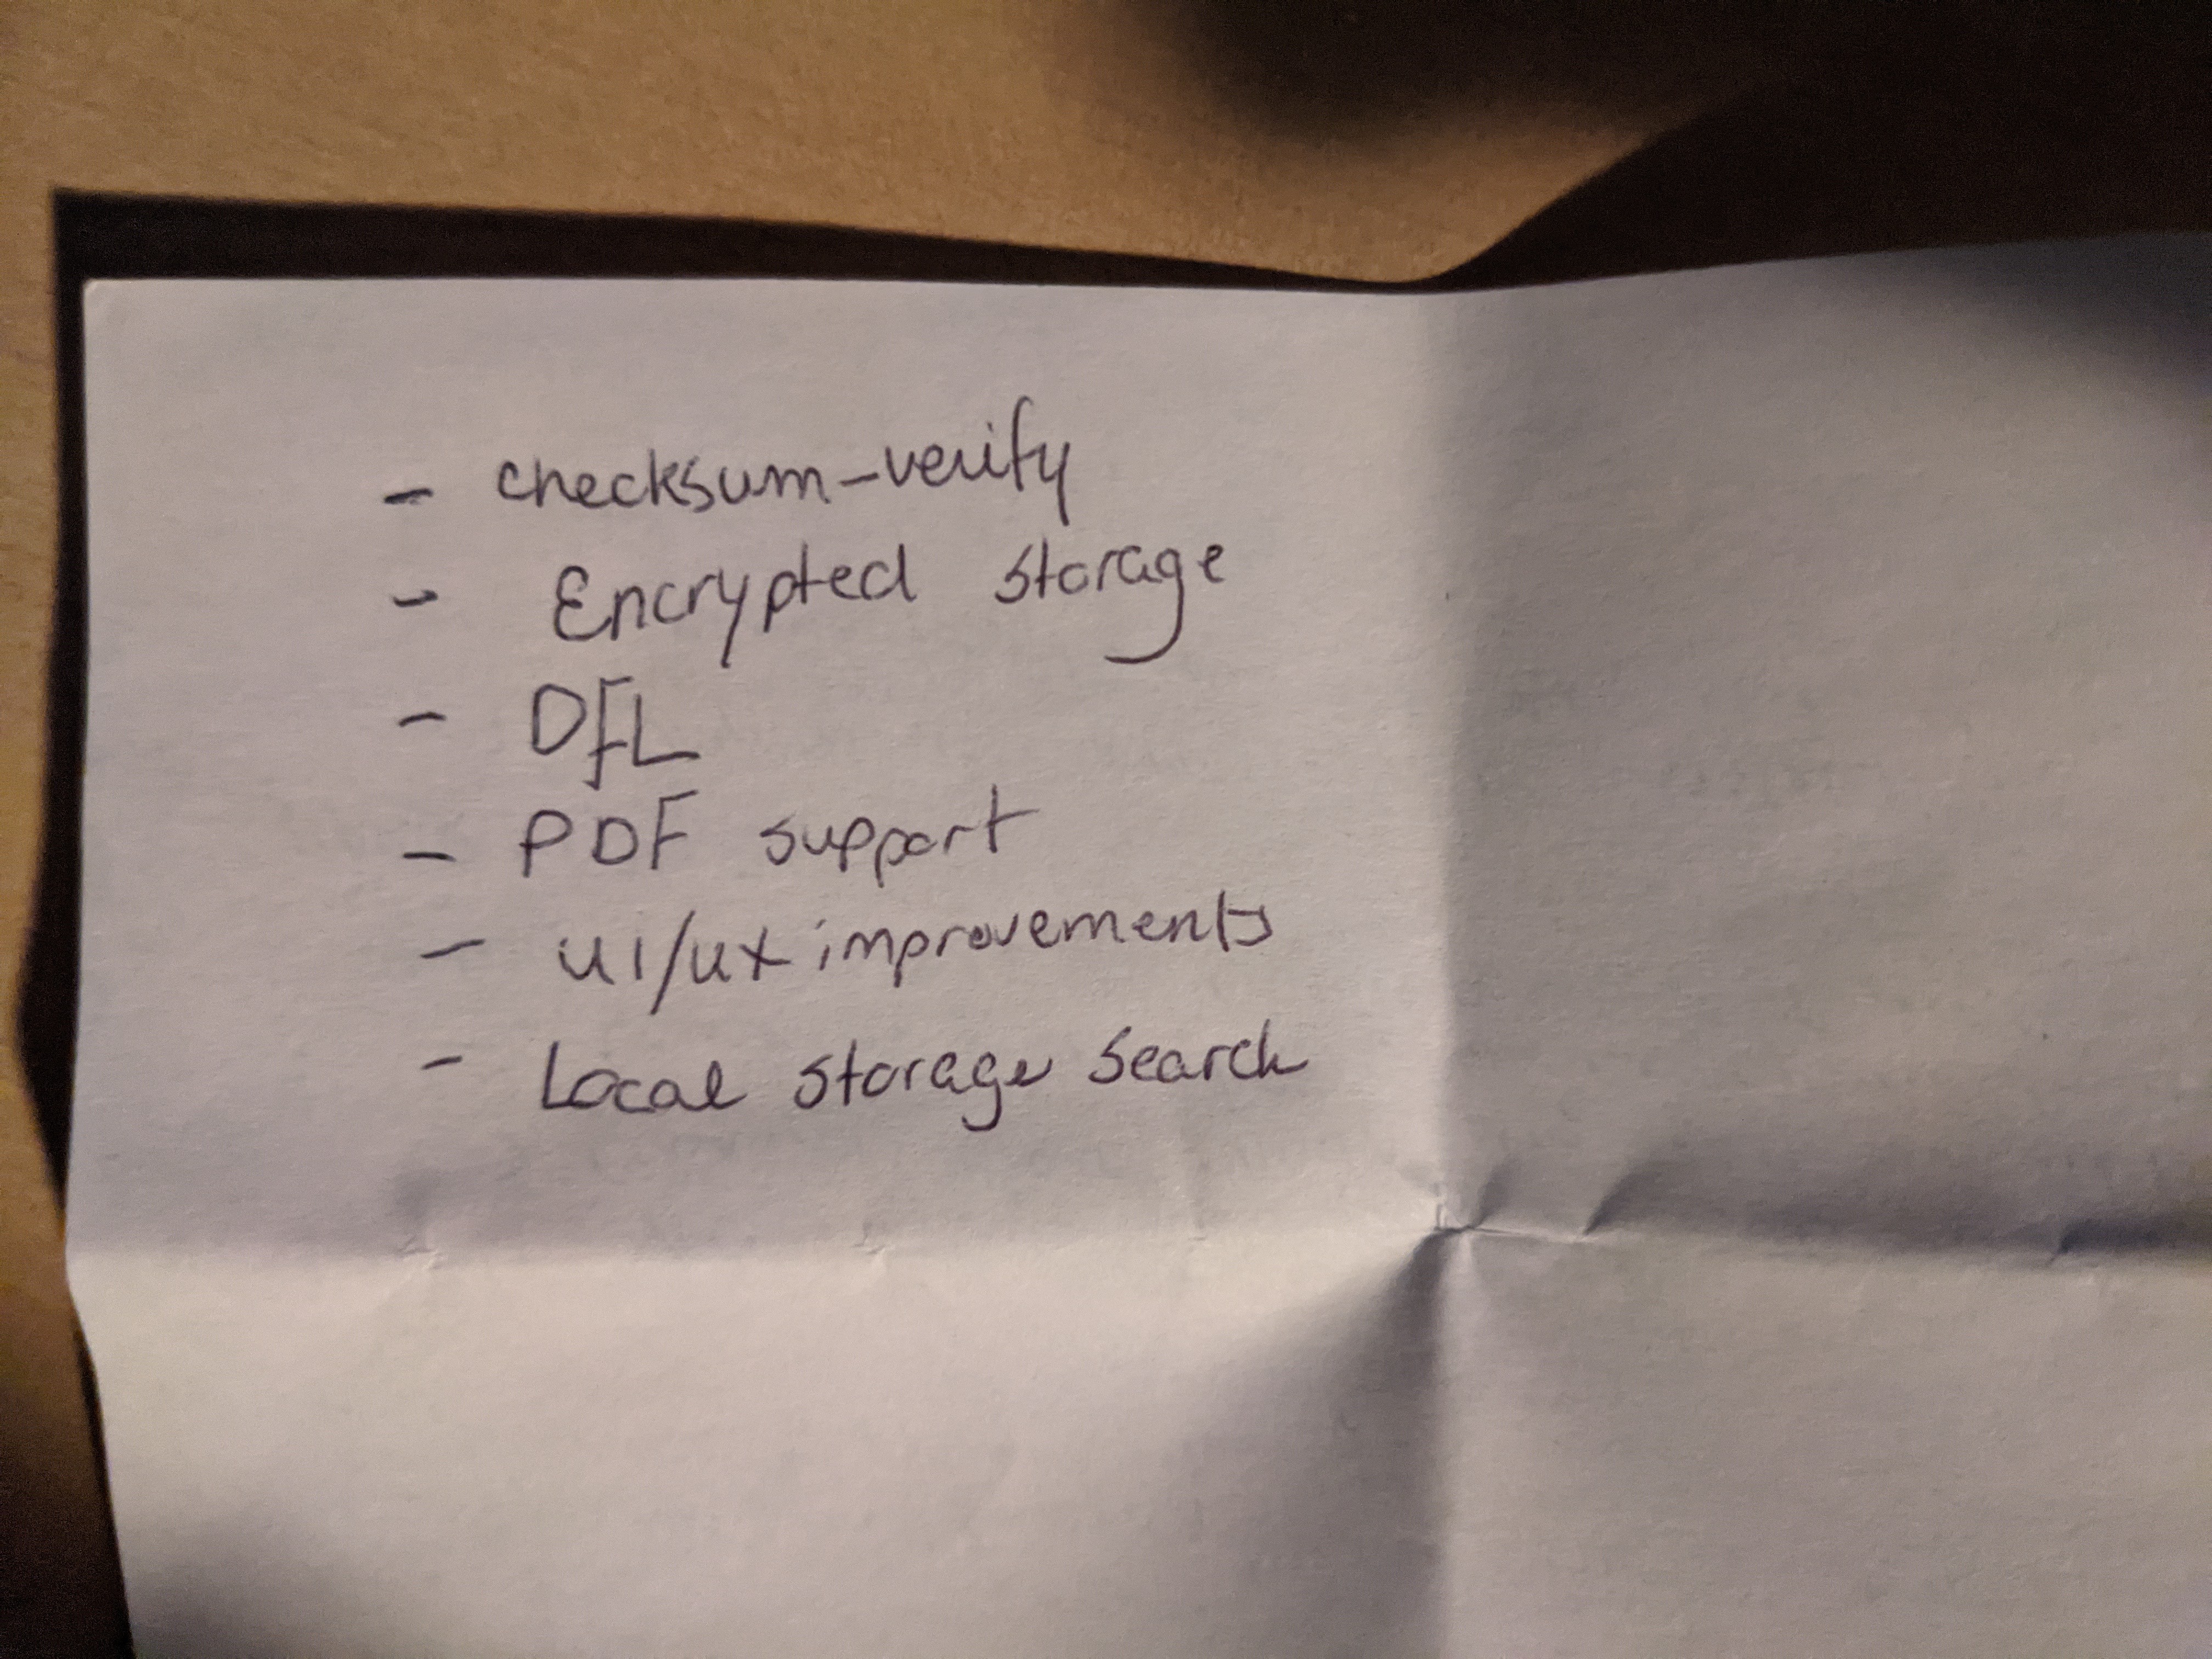 - checksum-verify
- Encrypted storage
- DFL
- PDF support
- UI/UX improvements
- Local storage search